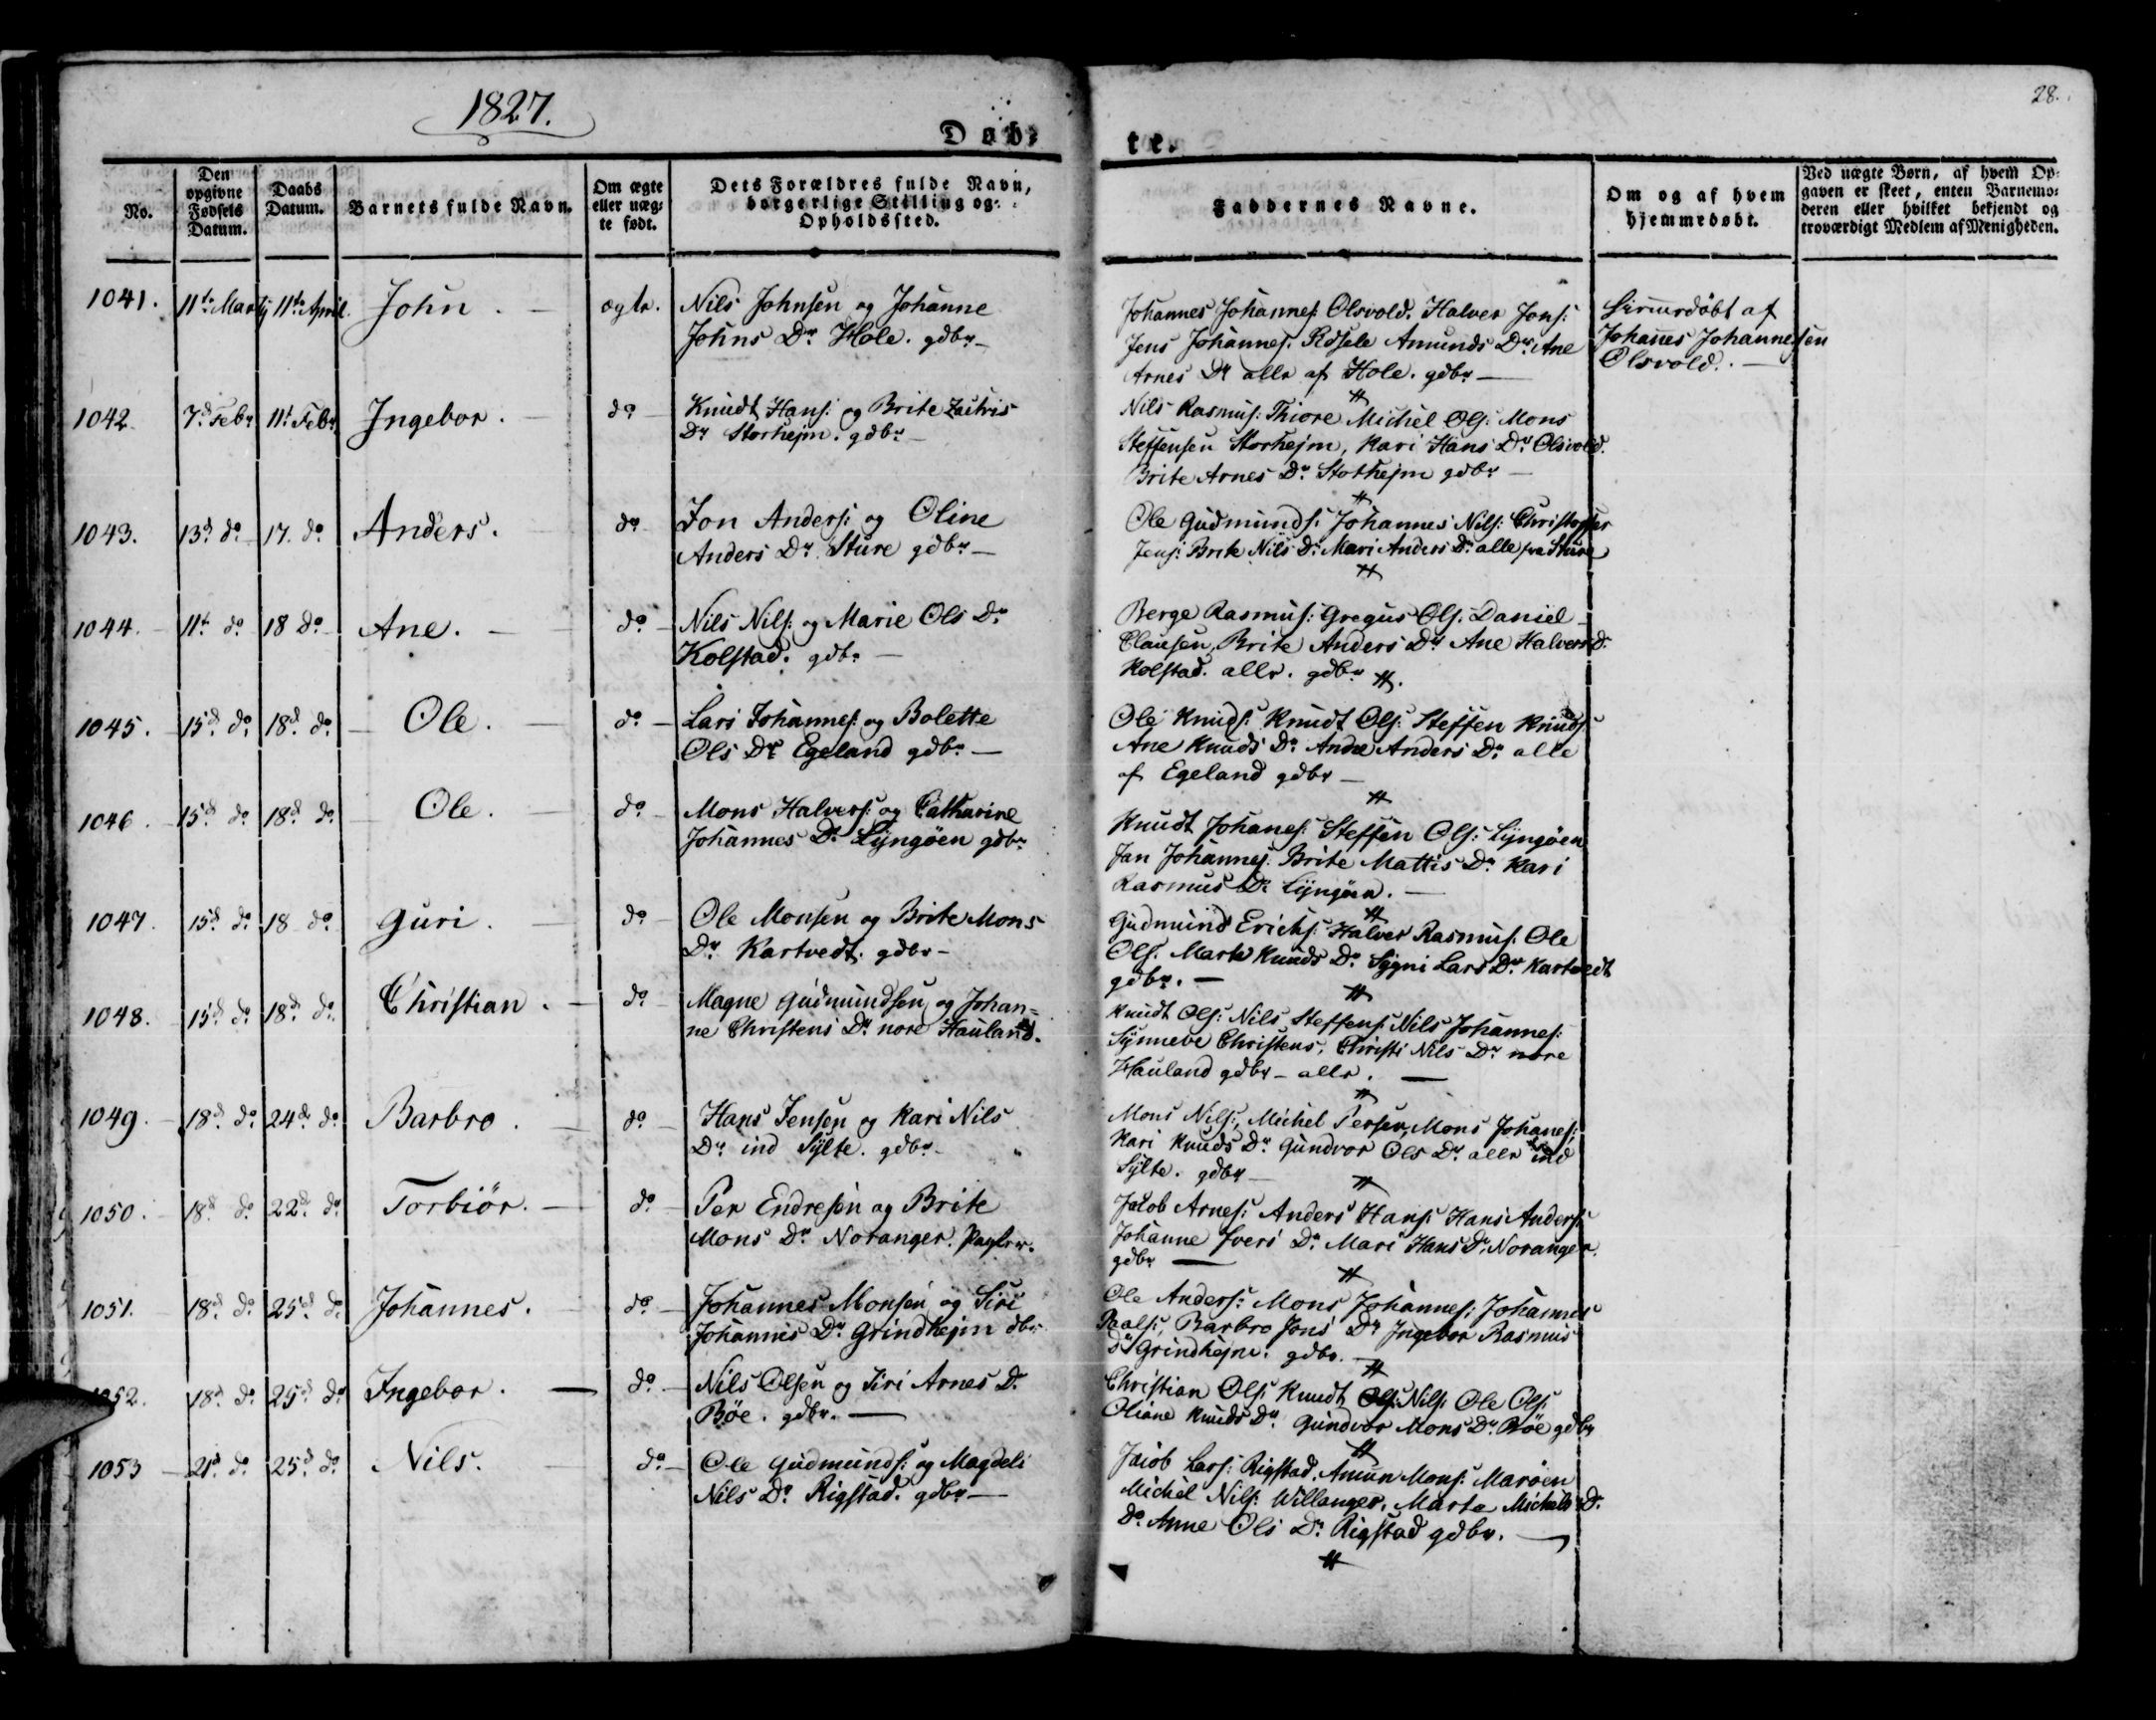 1827.
28.
Døb⸗
te.
No.
Den opgivne Fødsels Datum.
Daabs Datum.
Barnets fulde Navn.
Om ægte eller uæg⸗ te født.
Dets Forældres fulde Navn, borgerlige Stilling og Opholdssted.
Faddernes Navne.
Om og af hvem hjemmedøbt.
Ved uægte Børn, af hvem Op⸗ gaven er skeet, enten Barnemo⸗ deren eller hvilket bekjendt og troværdigt Medlem af Menigheden.
1041. 11te 11te April John. ægte. Nils Johnsen og Johanne
Johns Dr Hole. gdbr
Johannes Johannes: Olsvold. Halver Jons:
Jens Johannes: Amunds Dr. Ane
Arnes Dr alle af Hole. gdbr
Hiemedöbt af
Johanes Johannesen
Olsvold.
1042. 7d Febr 11t Febr Ingebor. do Knudt Hans: og Brite
Dr Storhejm. gdbr
Nils Rasmus: Thiore Michel Ols: Mons
Steffensen Storhejm, Kari Hans Dr Olsvold.
Brite Arnes Dr Storhejm gdbr
1043. 13d do 17. do Anders. do Jon Anders: og Oline
Anders Dr Sture gdbr
Ole Gudmunds: Johannes Nils: Christopher
Jens: Brite Nils Dr Mari Anders Dr alle fra Sture
1044. 11t do 18 do Ane. do Nils Nils: og Marie Ols Dr
Kolstad. gdbr
Berge Rasmus: Gregus Ols. Daniel
Clausen, Brite Anders Dr Ane Halvers D.
Kolstad. alle. gdbr
1045. 15d do 18d do Ole. do Lars Johannes: og Bolette
Ols Dr Egeland gdbr
Ole Knuds: Knudt Ols: Steffen Knuds:
Ane Knuds Dr Anders Dr alle
af Egeland gdbr
1046. 15d do 18d do Ole. do Mons Halvers: og Catharine
Johannes Dr Lyngöen gdbr
Knudt Johanes: Steffen Ols: Lyngöen
Jan Johannes: Brite Mattis Dr Kari
Rasmus Dr Lyngöen.
1047. 15d do 18 do Guri. do Ole Monsen og Brite Mons
Dr Kartvedt. gdbr
Gudmund Erichs: Halver Rasmus: Ole
Ols: Marte Knuds Dr Lars Dr Kartvedt
gdbr.
1048. 15d do 18d do Christian. do Magne Gudmundsen og Johan=
ne Christens Dr nore Hauland.
Knudt Ols: Nils Steffens: Nils Johannes:
Synneve Christens, Christi Nils Dr nore
Hauland gdbr alle.
1049. 18d do 24d do Barbro. do Hans Jensen og Kari Nils
Dr ind Sylte. gdbr
Mons Nils:, Michel Persen, Mons Johanes:
Kari Knuds Dr Gundvor Ols Dr alle ind
Sylte. gdbr
1050. 18d do 22d do Torbiör. do Per Endresen og Brite
Mons Dr Noranger.
Jacob Arnes: Anders Hans: Hans Anders:
Johanne Ivers Dr Mari Hans Dr Noranger.
gdbr
1051. 18d do 25d do Johannes. do Johannes Monsen og Siri
Johannis Dr Grindhejm gdbr
Ole Anders: Mons Johannes: Johannes
Paals:, Barbro Jons Dr Ingebor Rasmus
Dr Grindhejm. gdbr.
1052. 18d do 25d do Ingebor. do Nils Olsen og Siri Arnes D.
Böe. gdbr.
Christian Ols: Knudt Nils: Ole Ols:
Oliane Knuds Dr Gundvor Mons Dr Böe gdbr
1053 21d do 25d do Nils. do Ole Gudmunds: og Magdeli
Nils Dr Rigstad. gdbr
Jacob Lars: Rigstad. Amun Mons: Maröen
Michel Nils: Willanger, Marta Michels D.
Do Anne Ols Dr Rigstad gdbr.